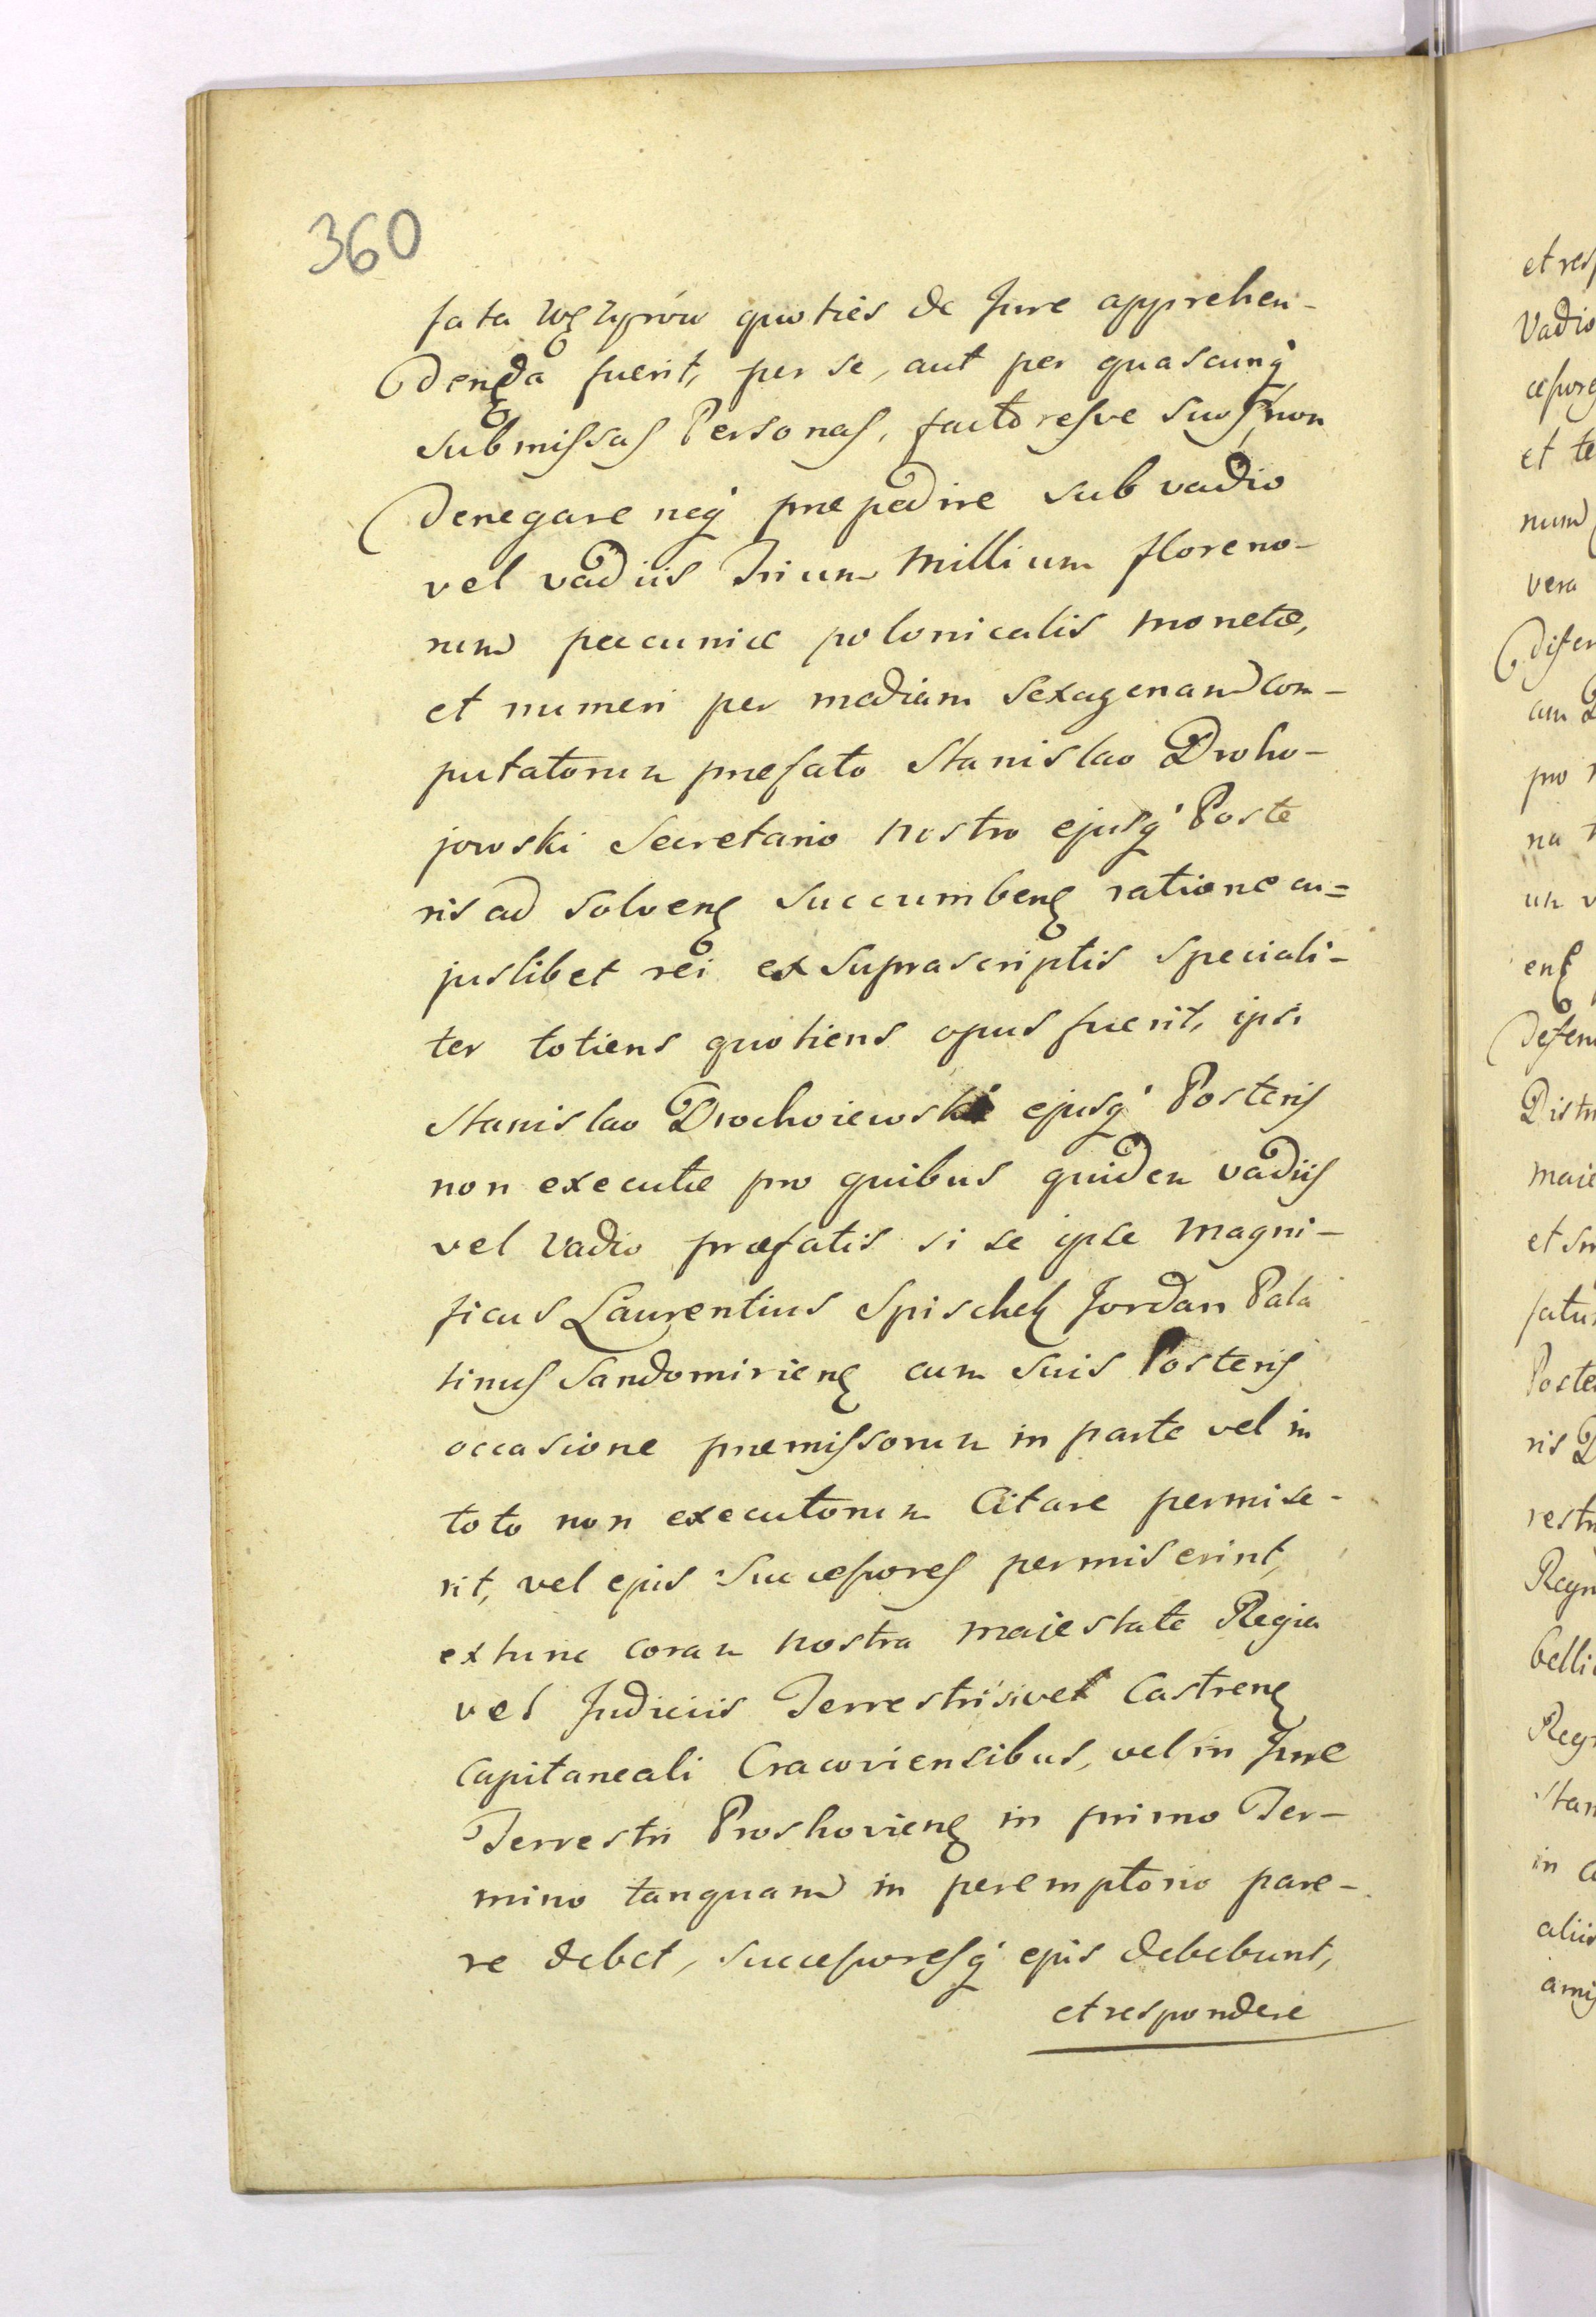 360
fata Węzyrów quoties de Jure apprehen-
denda fuerit, per se, aut per quascunq́
submissas Personas, factoresve suos, non
denegare neq́ præpedire sub vadio
vel vadiis Trium Millium floreno-
rum pecuniæ polonicalis monetæ,
et numeri per mediam sexagenam com-
putatorum præfato Stanislao Droho-
jowski Secretario nostro ejusq́ Poste
ris ad solvenę succumbenę ratione cu=
juslibet rei ex suprascriptis speciali-
ter totiens quotiens opus fuerit, ipsi
Stanislao Drochoiewski ejusq́ Posteris
non executæ pro quibus quidem vadiis
vel vadio præfatis si se ipse Magni-
ficus Laurentius Spischek Jordan Pala
tinus Sandomirienę cum suis Posteris
occasione præmissorum in parte vel in
toto non executorum Citare permise-
rit, vel ejus Successores permiserint,
extunc coram nostra Majestate Regia
vel Judiciis Terrestrisivel Castrenę
Capitaneali Cracoviensibus, vel in Jure
Terrestri Proshovienę in primo Ter-
mino tanquam in peremptorio pare-
re debet, successoresq́ ejus debebunt,
et respondere
et res
Vadio
cessore
et te
num
vera
pro
na
un v
enę
defen
Distr
maie
fatu
Poste
ris D
restr
Regn
belli
Reg
in
aliis